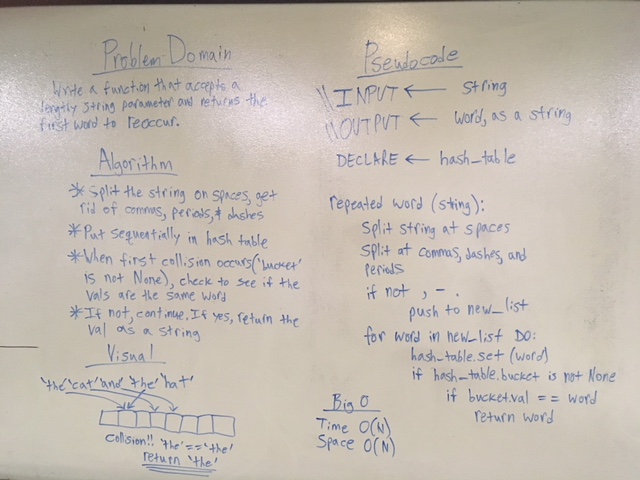 Problem Domain
Write a function that accepts a
lengthy string parameter and returns the
first word to reoccur.
Algorithm
* Split the string on spaces, get
rid of commas, periods, & dashes
* Put sequentially in hash table
* When first collision occurs ('bucket'
is not None), check to see if the
vals are the same word
* If not, continue. If yes, return the
val as a string
Visual
'the' 'cat' 'and' 'the' 'hat'
collsion!! 'the' == 'the'
return 'the'
Pseudocode
\\INPUT ← string
\\OUTPUT ← word, as a string
DECLARE ← hash_table
repeated word (string):
Split string at spaces
Split at commas, dashes, and
periods
if not , - .
push to new_list
for word in new_list DO:
hash_table.set (word)
if hash_table.bucket is not None
if bucket.val == word
return word
Big O
Time O(N)
Space O(N)